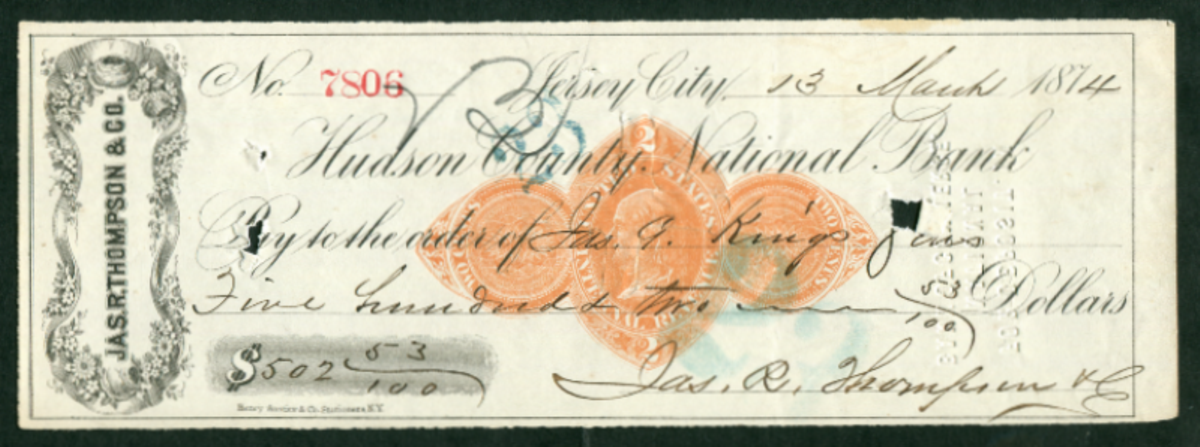 JAS. R. THOMPSON & CO.
No. 7806 Jersey City, 13 March 1874
Hudson County National Bank
Pay to the order of Jas. G. King's Sons
Five hundred & two 53/100 Dollars
$502 53/100
Jas. R. Thompson & Co
2 UNITED STATES
INTERNAL REVENUE 2
TWO CENTS